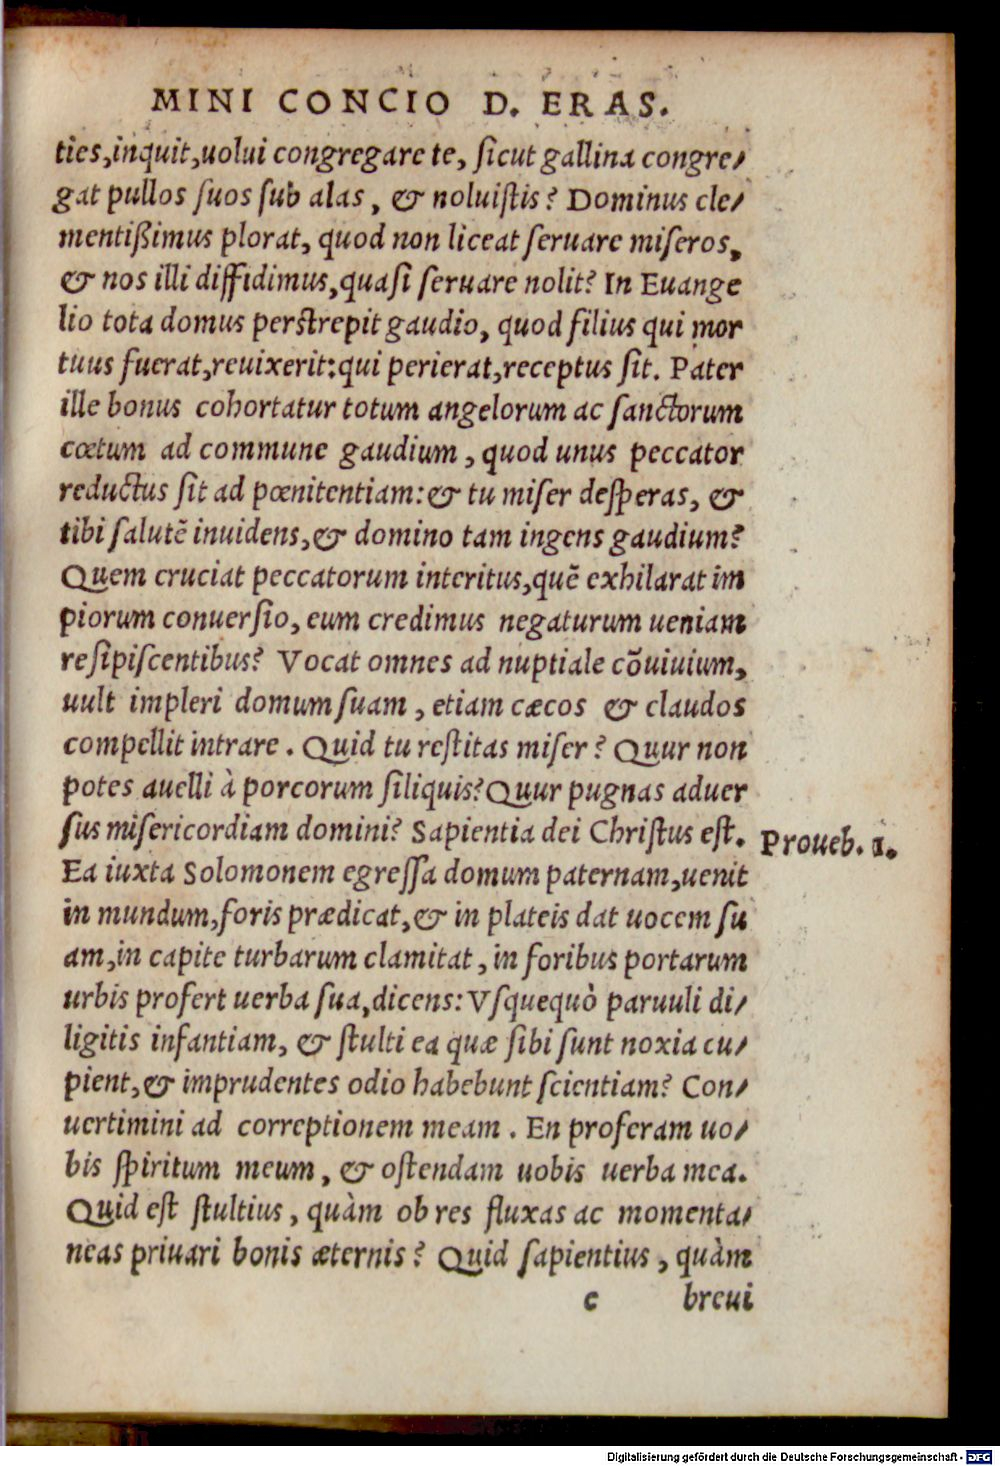 MINI CONCIO D. ERAS.
ties,inquit,uolui congregare te, ſicut gallina congre⸗
gat pullos ſuos ſub alas, & noluiſtis? Dominus cle⸗
mentißimus plorat, quod non liceat ſeruare miſeros,
& nos illi diffidimus,quaſi ſeruare nolit? In Euange
lio tota domus perſtrepit gaudio, quod filius qui mor
tuus fuerat,reuixerit:qui perierat,receptus ſit. Pater
ille bonus cohortatur totum angelorum ac ſanctorum
cœtum ad commune gaudium, quod unus peccator
reductus ſit ad pœnitentiam:& tu miſer deſperas, &
tibi ſalutẽ inuidens,& domino tam ingens gaudium?
Quem cruciat peccatorum interitus,quẽ exhilarat im
piorum conuerſio, eum credimus negaturum ueniam
reſipiſcentibus? Vocat omnes ad nuptiale cõuiuium,
uult impleri domum ſuam, etiam cæcos & claudos
compellit intrare. Quid tu reſtitas miſer? Quur non
potes auelli à porcorum ſiliquis?Quur pugnas aduer
ſus miſericordiam domini? Sapientia dei Chriſtus eſt.
Proueb. 1.
Ea iuxta Solomonem egreſſa domum paternam,uenit
in mundum,foris prædicat,& in plateis dat uocem ſu
am,in capite turbarum clamitat, in foribus portarum
urbis profert uerba ſua,dicens: Vſquequò paruuli di⸗
ligitis infantiam, & ſtulti ea quæ ſibi ſunt noxia cu⸗
pient,& imprudentes odio habebunt ſcientiam? Con⸗
uertimini ad correptionem meam. En proferam uo⸗
bis ſpiritum meum, & oſtendam uobis uerba mea.
Quid eſt ſtultius, quàm ob res fluxas ac momenta⸗
neas priuari bonis æternis? Quid ſapientius, quàm
c breui
Digitalisierung gefördert durch die Deutsche Forschungsgemeinschaft - DFG